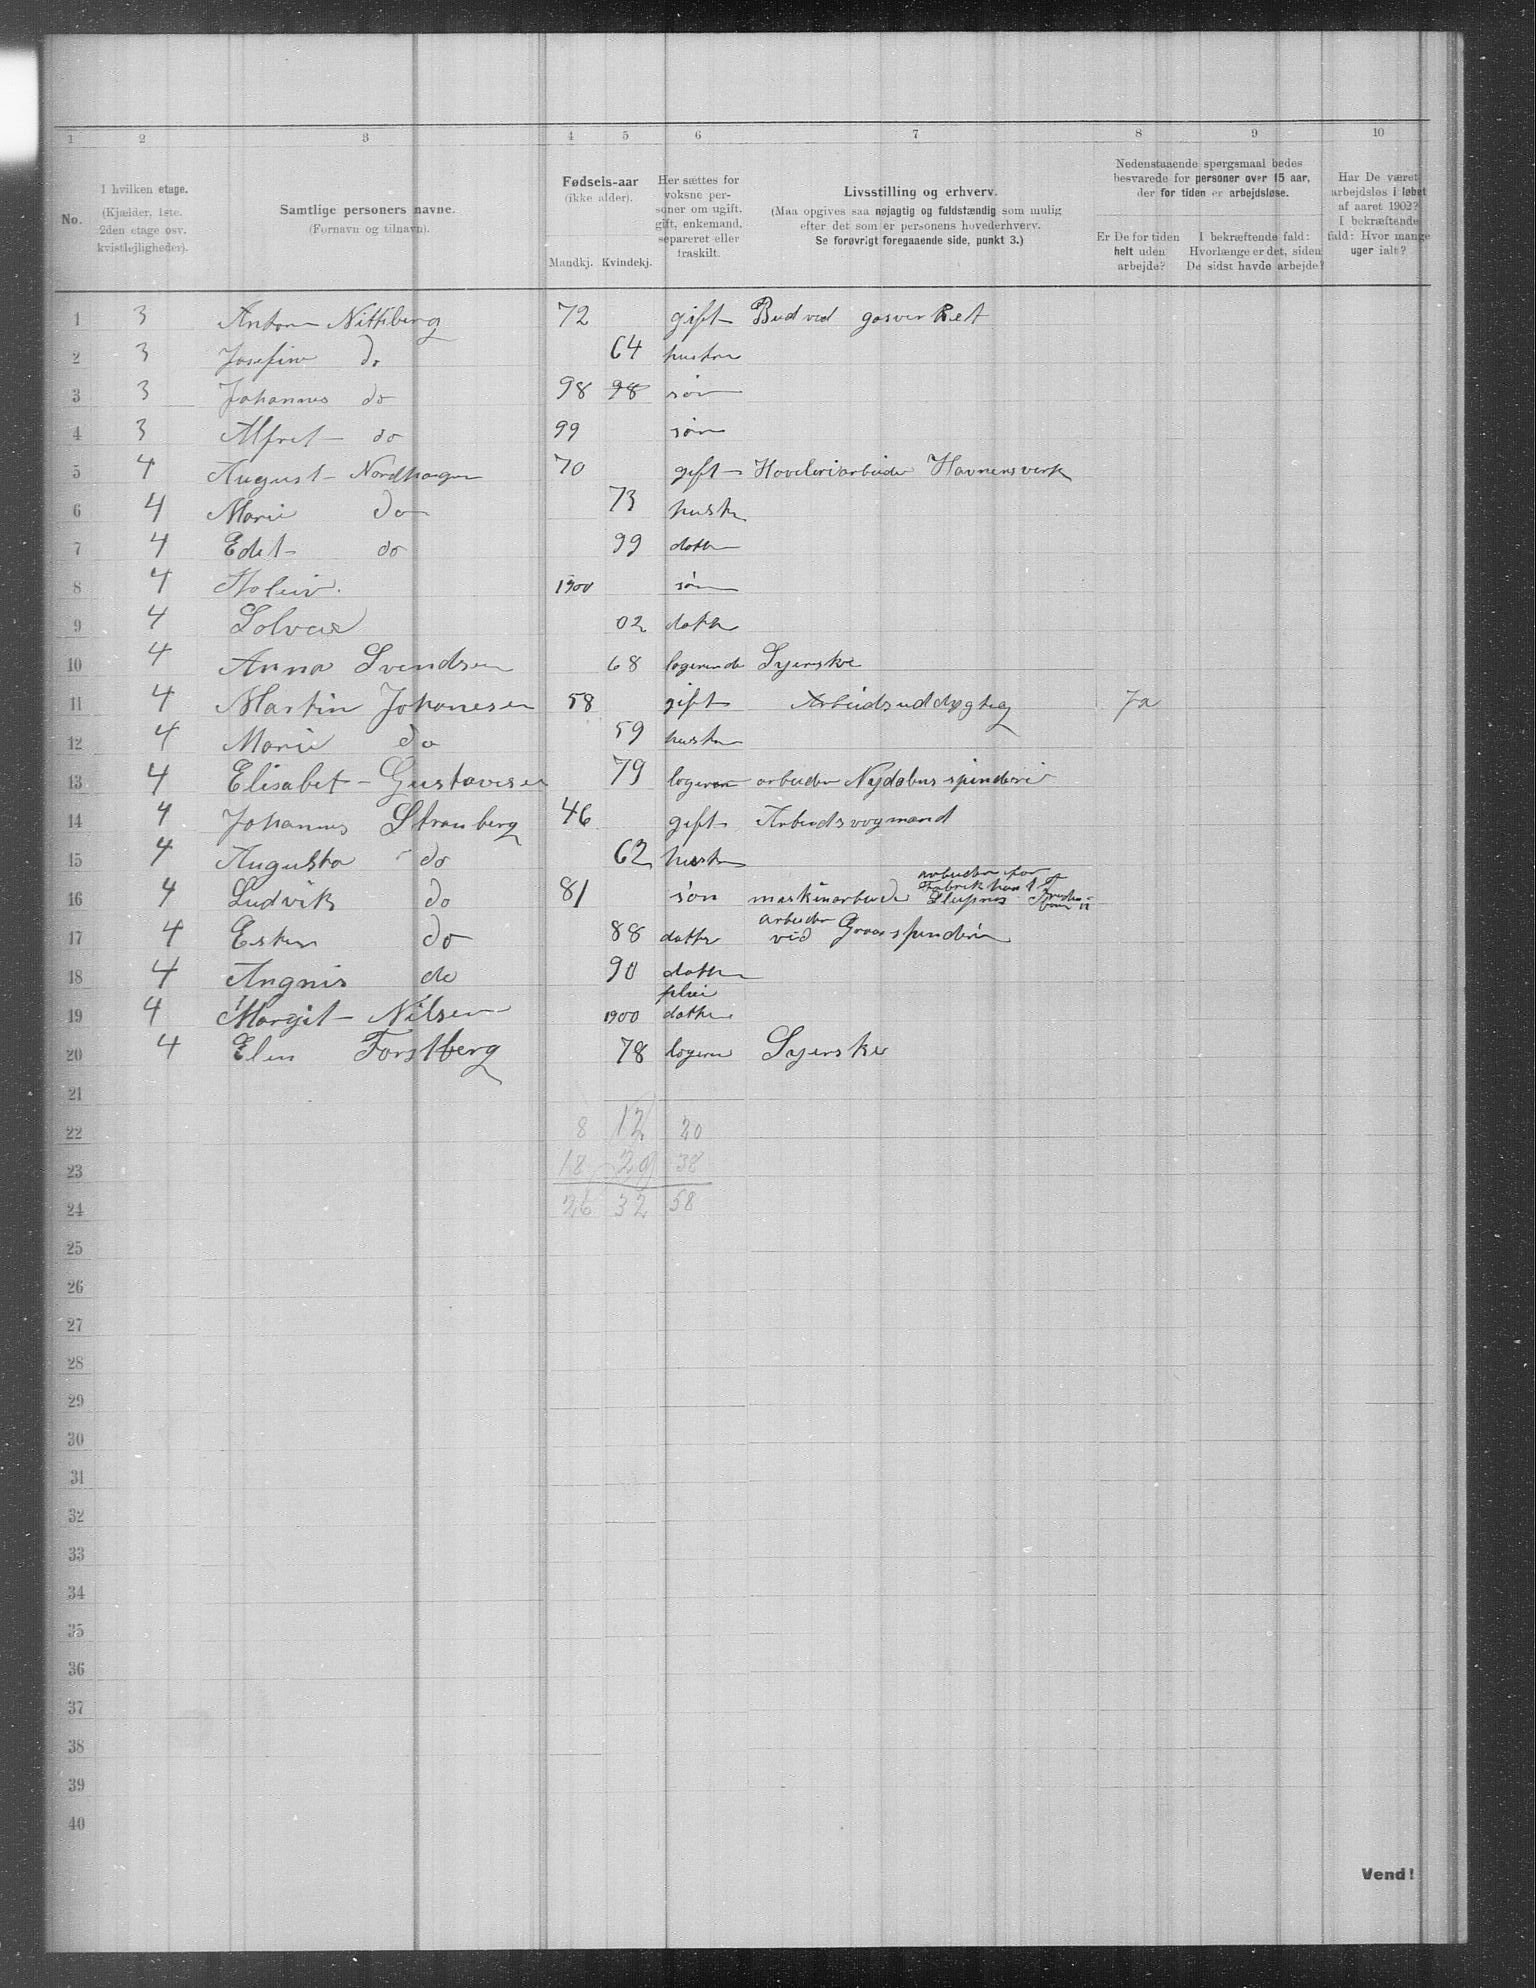 1 2 3 4 5 6 7 8 9 10
No.
I hvilken etage.
(Kjælder, 1ste.
2den etage osv.
kvistlejligheder).
Samtlige personers navne.
(Fornavn og tilnavn).
Fødsels-aar
(ikke alder).
Mandkj. Kvindekj.
Her sættes for
voksne per-
soner om ugift,
gift, enkemand,
separeret eller
fraskilt.
Livsstilling og erhverv.
(Maa opgives saa nøjagtig og fuldstændig som mulig
efter det som er personens hovederhverv.
Se forøvrigt foregaaende side, punkt 3.)
Nedenstaaende spørgsmaal bedes
besvarede for personer over 15 aar,
der for tiden er arbejdsløse.
Er De for tiden
helt uden
arbejde?
I bekræftende fald:
Hvorlænge er det, siden
De sidst havde arbejde?
Har De været
arbejdsløs i løbet
af aaret 1902?
I bekræftende
fald: Hvor mange
uger ialt?
1 3 Anton Nittiberg 72 gift Bud ved gasverket
2 3 Josefine do 64 hustru
3 3 Johannes do 98 98 søn
4 3 Alfret do 99 søn
5 4 August Nordhagen 70 gift Høvleriarbeider Havnensverk
6 4 Marie do 73 hustr
7 4 Edit do 99 datter
8 4 1900 søn
9 4 Solveig 02 datter
10 4 Anna Svendsen 68 logerende Syerske
11 4 Martin Johanesen 58 gift Arbeidsuddygtig Ja
12 4 Marie do 59 hustru
13 4 Elisabet Gustavesen 79 logeren arbeider Nydalens spinderi
14 4 Johannes Stranberg 46 gift Arbeidsvogmand
15 4 Augusta do 62 hustr
16 4 Ludvik do 81 søn maskinarbeide arbeider for Fabrikhant
17 4 Ester do 88 datter arbeider ved Graas spinderi
18 4 Angnis do 90 datter
19 4 Margit Nilsen 1900 plei datter
20 4 Elen Forstberg 78 logeren Syerske
21
22 8 12 20
23 18 20 38
24 26 32 58
25
26
27
28
29
30
31
32
33
34
35
36
37
38
39
40
Vend!